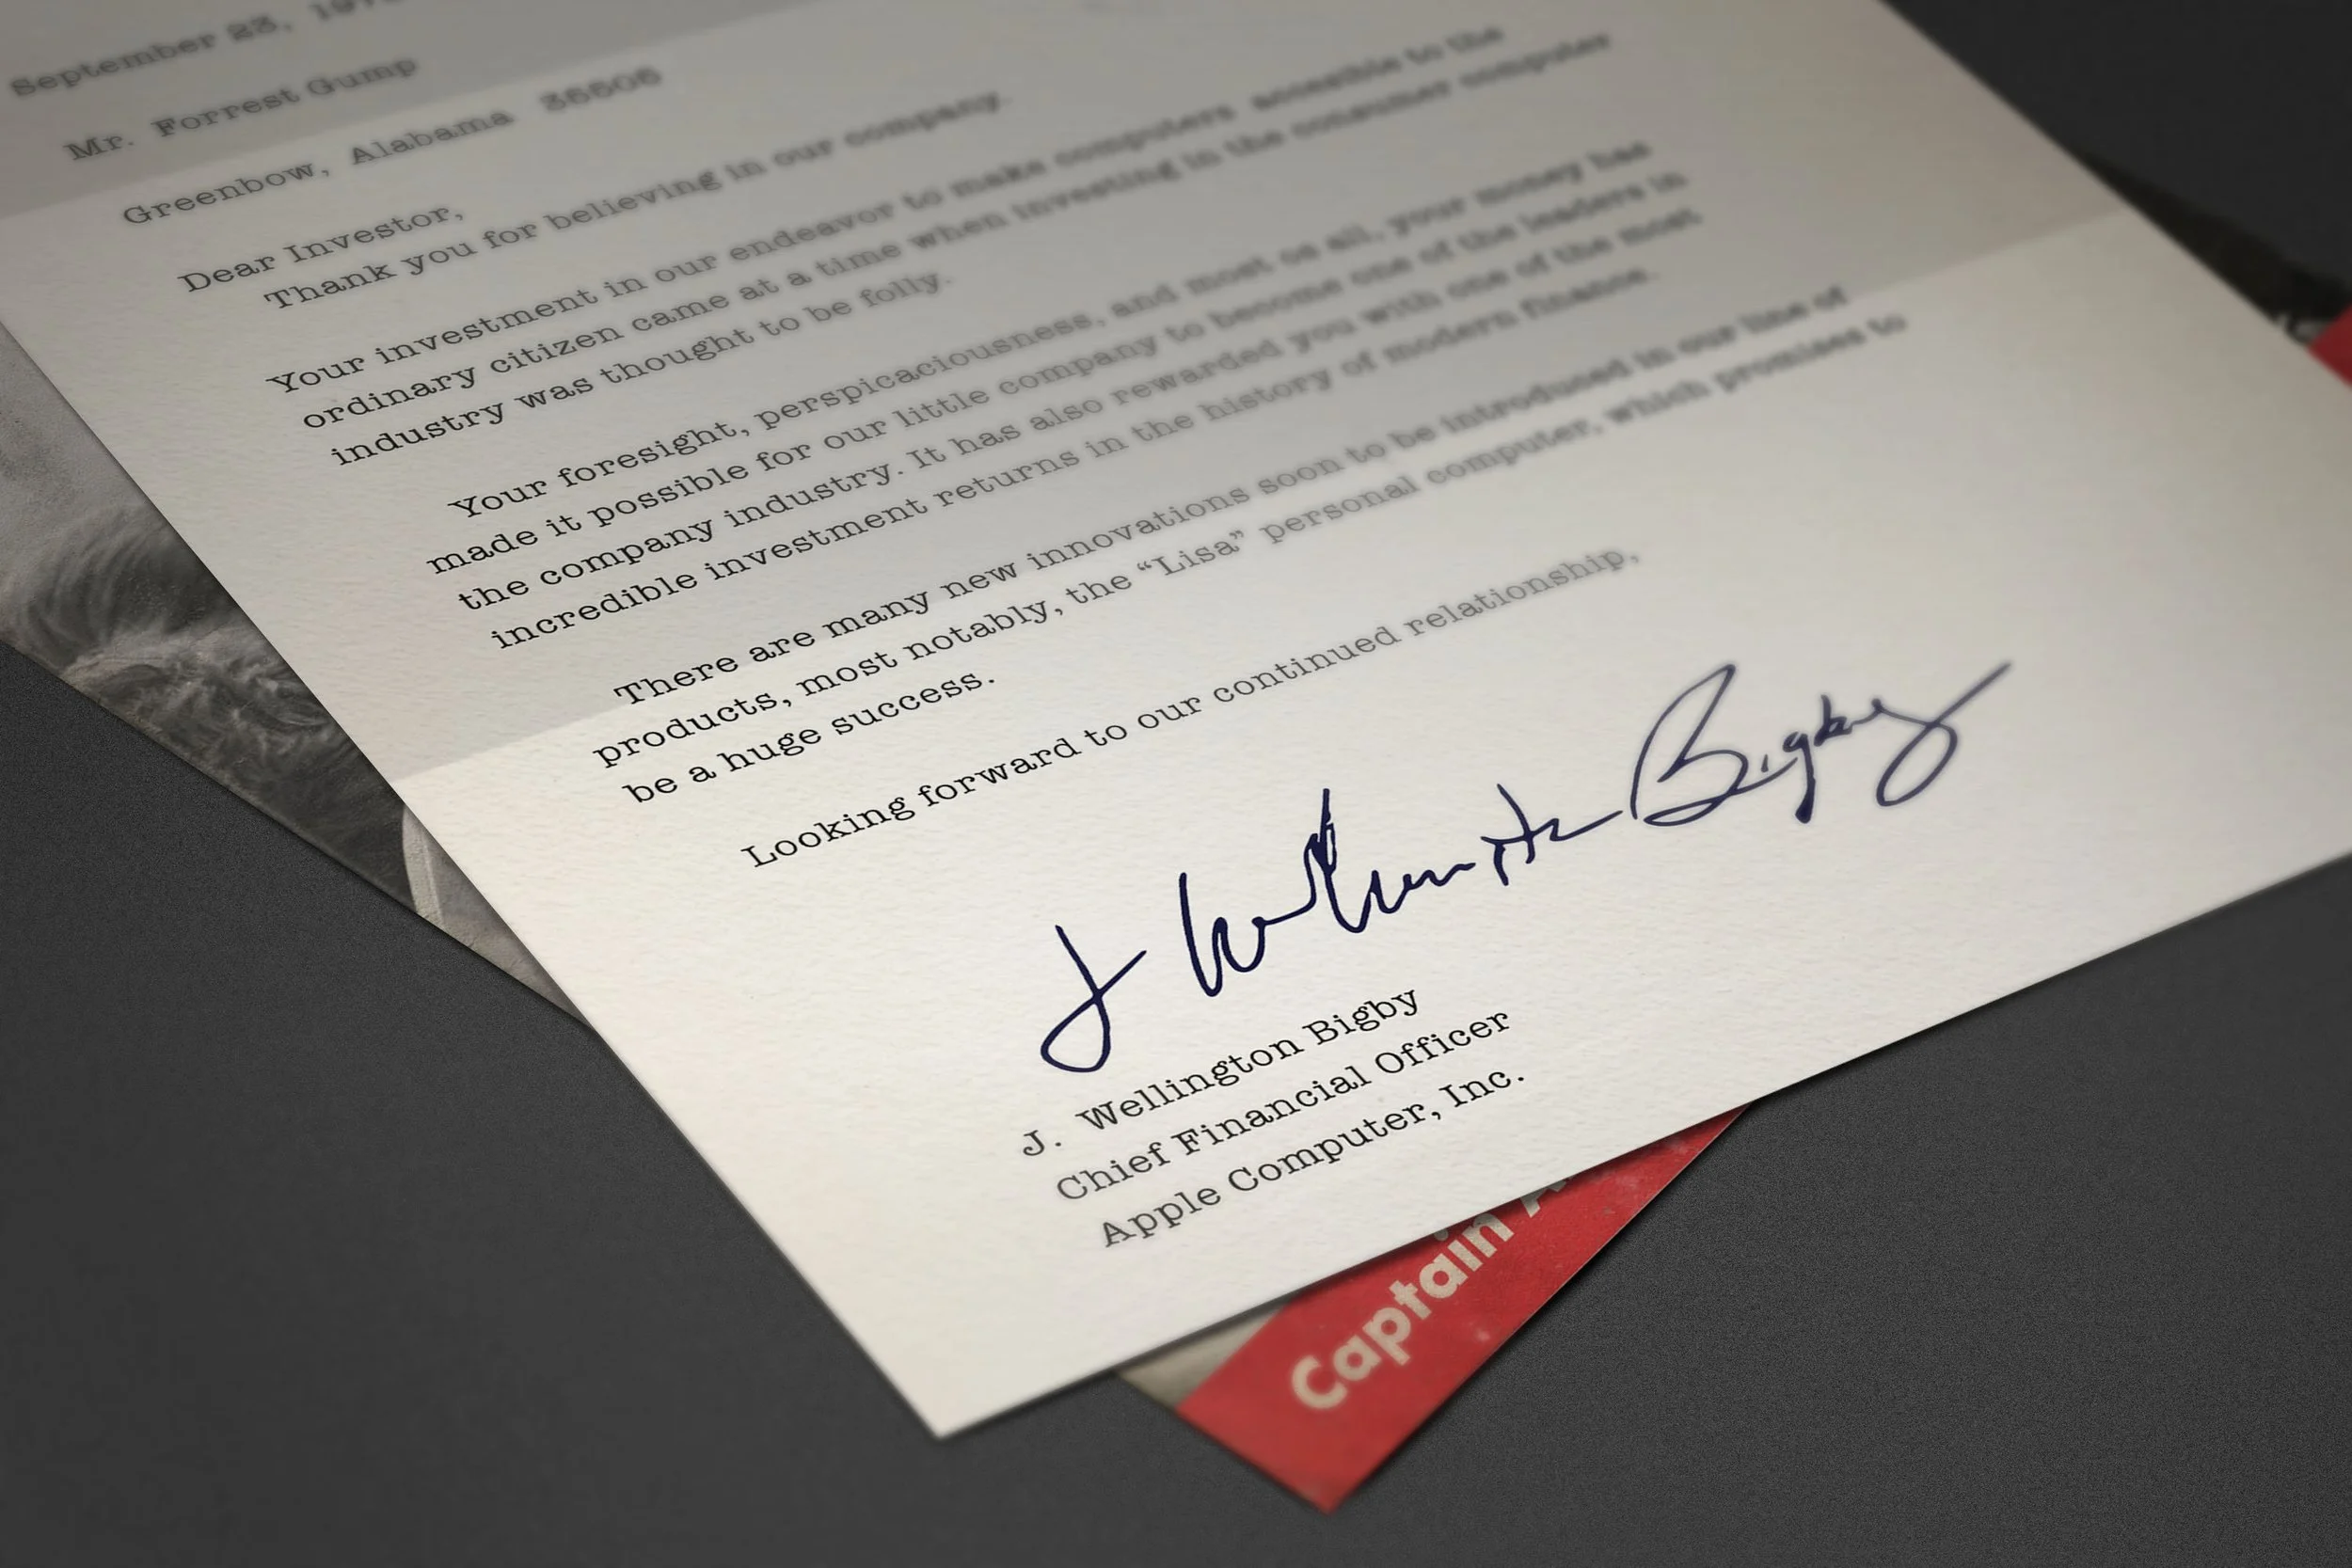 September 23, 197
Mr. Forrest Gump
Greenbow, Alabama 36506
Dear Investor,
Thank you for believing in our company.
Your investment in our endeavor to make computers accesible to the
ordinary citizen came at a time when investing in the consumer computer
industry was thought to be folly.
Your foresight, perspicaciousness, and most os all, your money has
made it possible for our little company to become one of the leaders in
the company industry. It has also rewarded you with one of the most
incredible investment returns in the history of modern finance.
There are many new innovations soon to be introduced in our line of
products, most notably, the “Lisa” personal computer, which promises to
be a huge success.
Looking forward to our continued relationship,
J Wellington Bigby
J. Wellington Bigby
Chief Financial Officer
Apple Computer, Inc.
Captain A